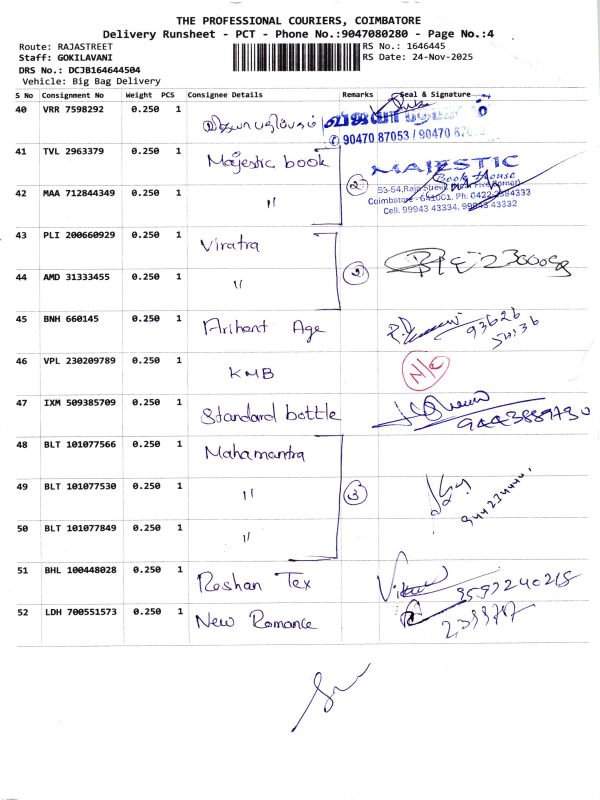 THE PROFESSIONAL COURIERS, COIMBATORE
Delivery Runsheet - PCT - Phone No.:9047080280 - Page No.:4
Route: RAJASTREET RS No.: 1646445
Staff: GOKILAVANI RS Date: 24-Nov-2025
DRS No.: DCJB164644504
Vehicle: Big Bag Delivery
S No Consignment No Weight PCS Consignee Details Remarks Seal & Signature
40 VRR 7598292 0.250 1
✆ 90470 87053 / 90470
41 TVL 2963379 0.250 1 Majestic book
MAJESTIC
Book House
42 MAA 712844349 0.250 1 " 2
53-54, Raja Street,
Coimbatore - 641001. Ph: 0422-2394333
Cell: 99943 43334, 99943 43332
43 PLI 200660929 0.250 1 Viratra
44 AMD 31333455 0.250 1 " 2
45 BNH 660145 0.250 1 Arihant Age 93626
46 VPL 230209789 0.250 1 KMB N/C
47 IXM 509385709 0.250 1 Standard bottle 9443889730
48 BLT 101077566 0.250 1 Mahamantra
49 BLT 101077530 0.250 1 " 3
50 BLT 101077849 0.250 1 "
51 BHL 100448028 0.250 1 Roshan Tex 9597240218
52 LDH 700551573 0.250 1 New Romance